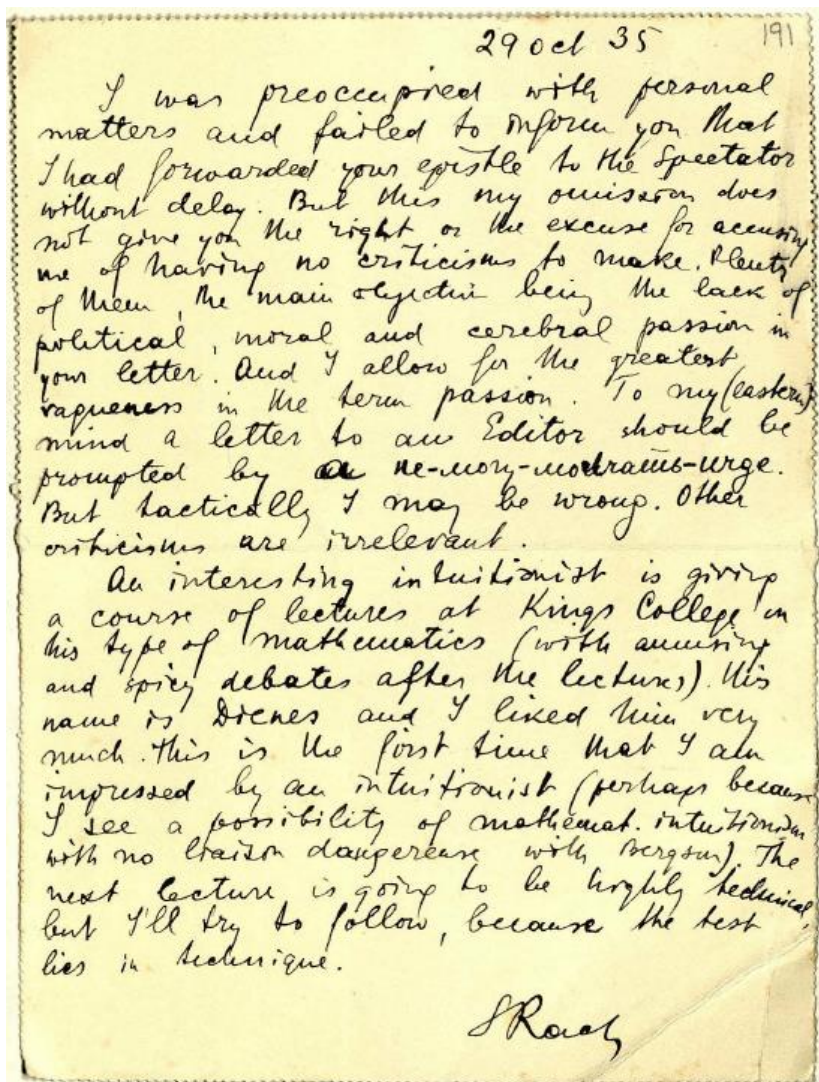 29 Oct 35
191
I was preoccupied with personal
matters and failed to inform you that
I had forwarded your epistle to the Spectator
without delay. But this my omission does
not give you the right or the excuse for accusing
me of having no criticisms to make. Plenty
of them, the main objection being the lack of
political, moral and cerebral passion in
your letter. And I allow for the greatest
vagueness in the term passion. To my (eastern)
mind a letter to an Editor should be
prompted by
But tactically I may be wrong. Other
criticisms are irrelevant.
An interesting intuitionist is giving
a course of lectures at Kings College on
his type of mathematics (with amusing
and spicy debates after the lectures). His
name is Dienes and I liked him very
much. This is the first time that I am
impressed by an intuitionist (perhaps because
I see a possibility of mathemat. intuitionism
with no liaison dangereuse with Bergson). The
next lecture is going to be highly technical,
but I'll try to follow, because the test
lies in technique.